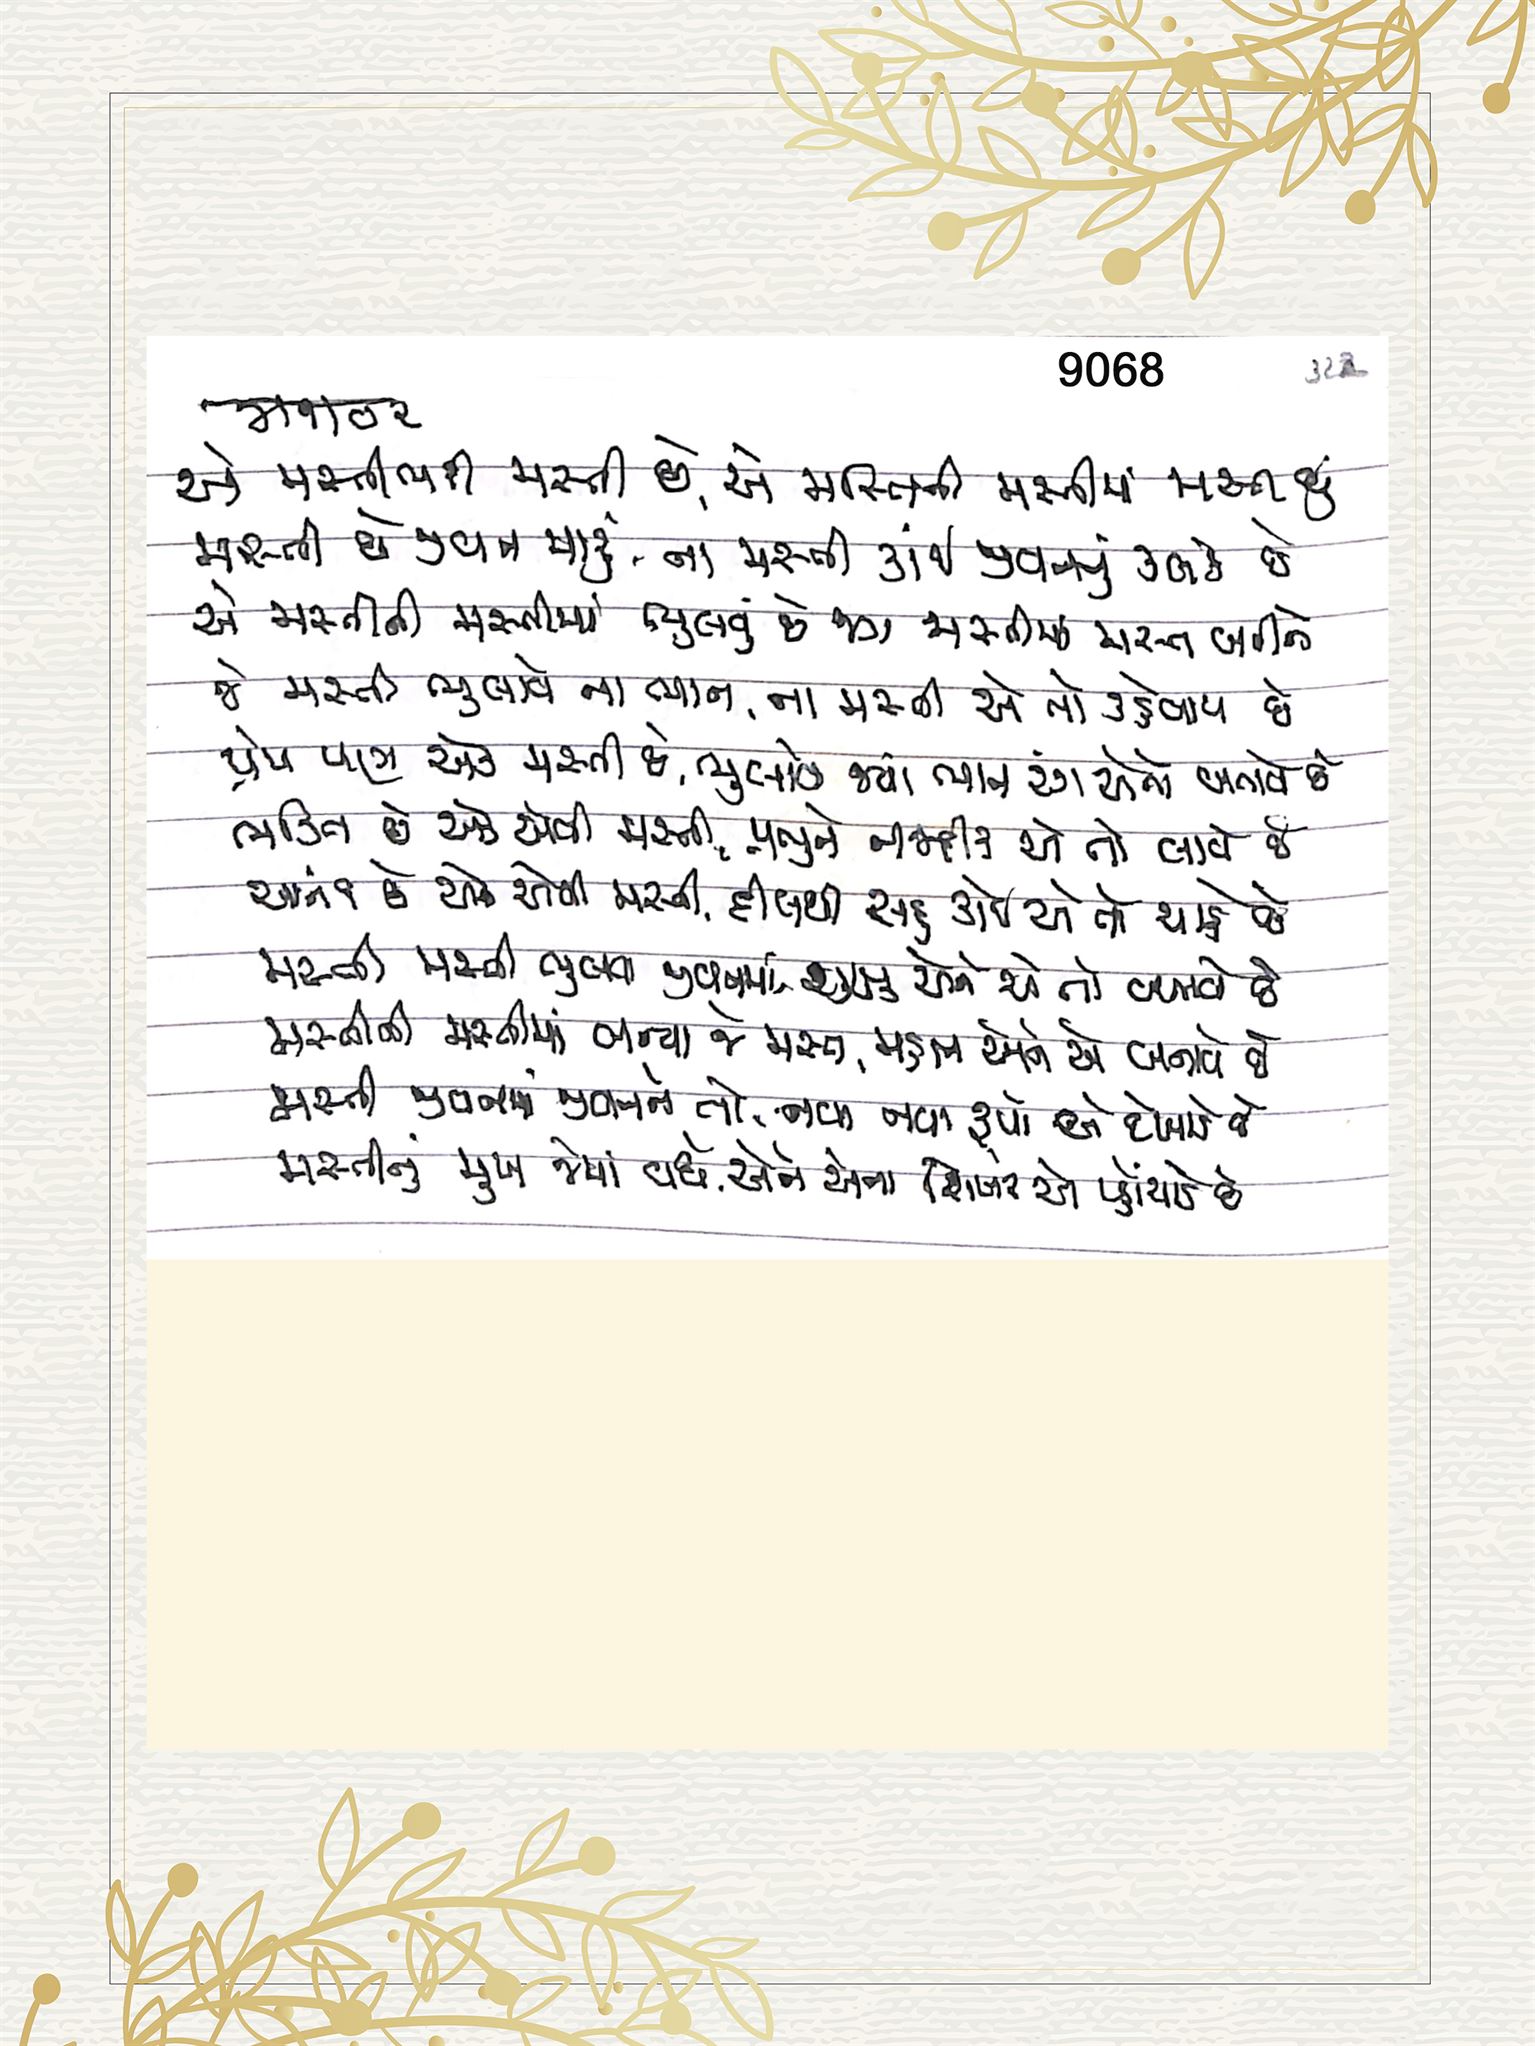 9068
322
એ મસ્તીભરી મસ્તી છે, એ મસ્તિની મસ્તીમાં મસ્ત છું
મસ્તી છે જીવન મારું, ના મસ્તી કાંઈ જીવનનું
એ મસ્તીની મસ્તીમાં ભુલવું છે જગ મસ્તીમાં મસ્ત બનીને
જે મસ્તી ભુલાવે ના ભાન, ના મસ્તી એ તો કહેવાય છે
પ્રેમ પણ એક મસ્તી છે, ભુલાવે જ્યાં ભાન રંગ એનો બતાવે છે
ભક્તિ છે એક એવી મસ્તી, પ્રભુને નજદીક એ તો લાવે છે
આનંદ છે એક એવી મસ્તી, દીલથી સહુ કોઈ એ તો ચાહે છે
મસ્તી મસ્તી ભુલવા જીવનમાં, એને એ તો બનાવે છે
મસ્તીની મસ્તીમાં બન્યા જે મસ્ત, મહાન એને એ બનાવે છે
મસ્તી જીવનમાં જીવનને તો, નવા નવા રૂપો એ દેખાડે છે
મસ્તીનું મુખ જેમાં વધે, એને એના શિખર એ પહોંચાડે છે